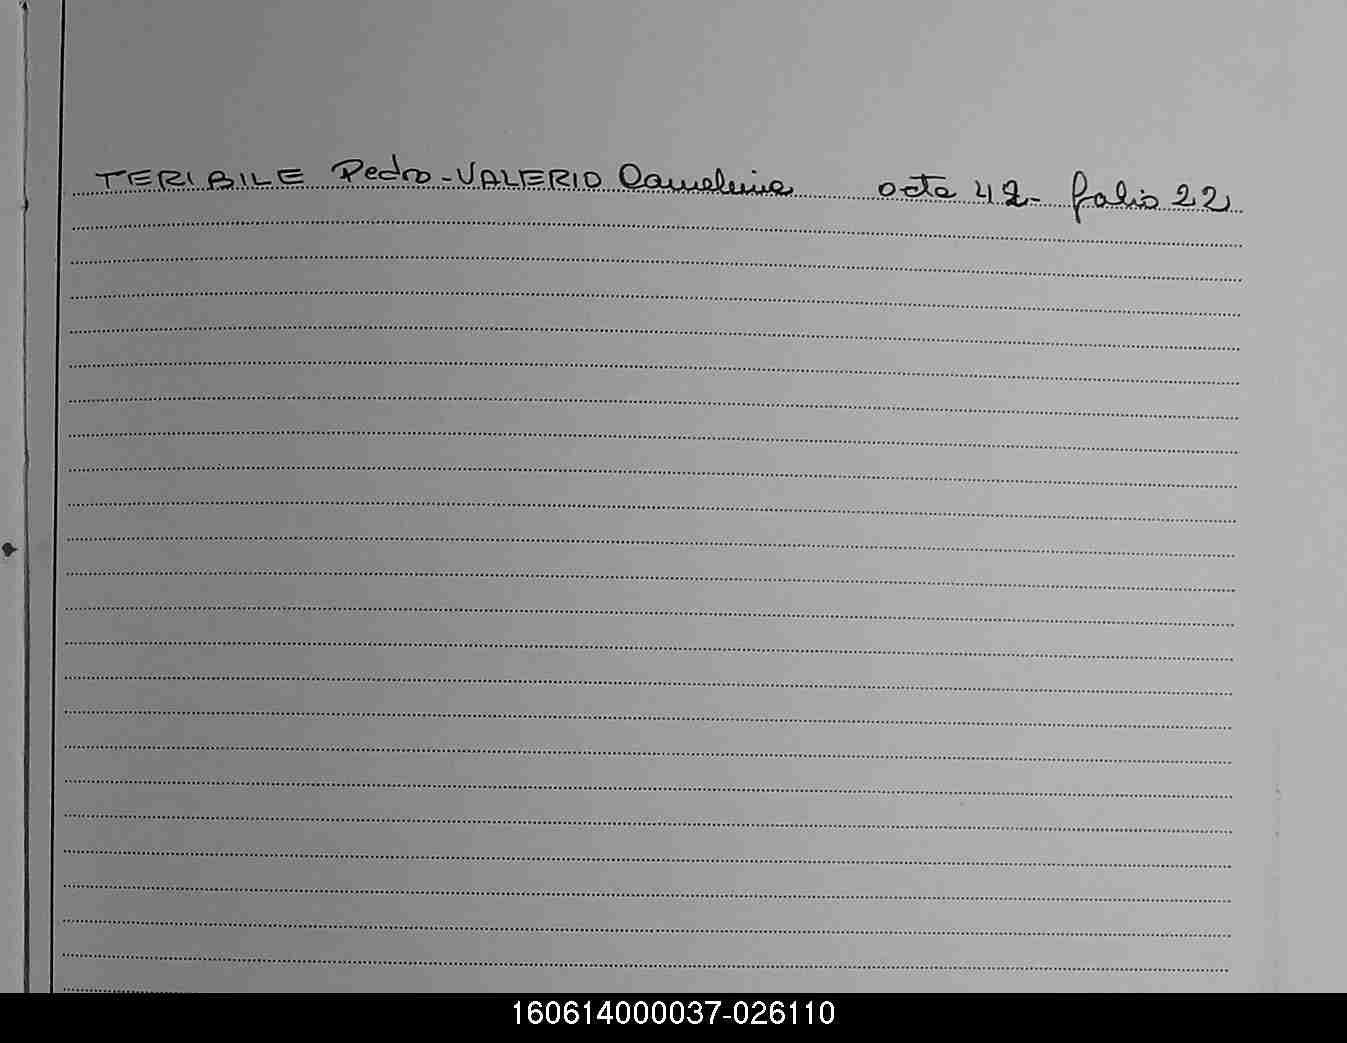 TERIBILE Pedro-VALERIO acta 42- folio 22
160614000037-026110